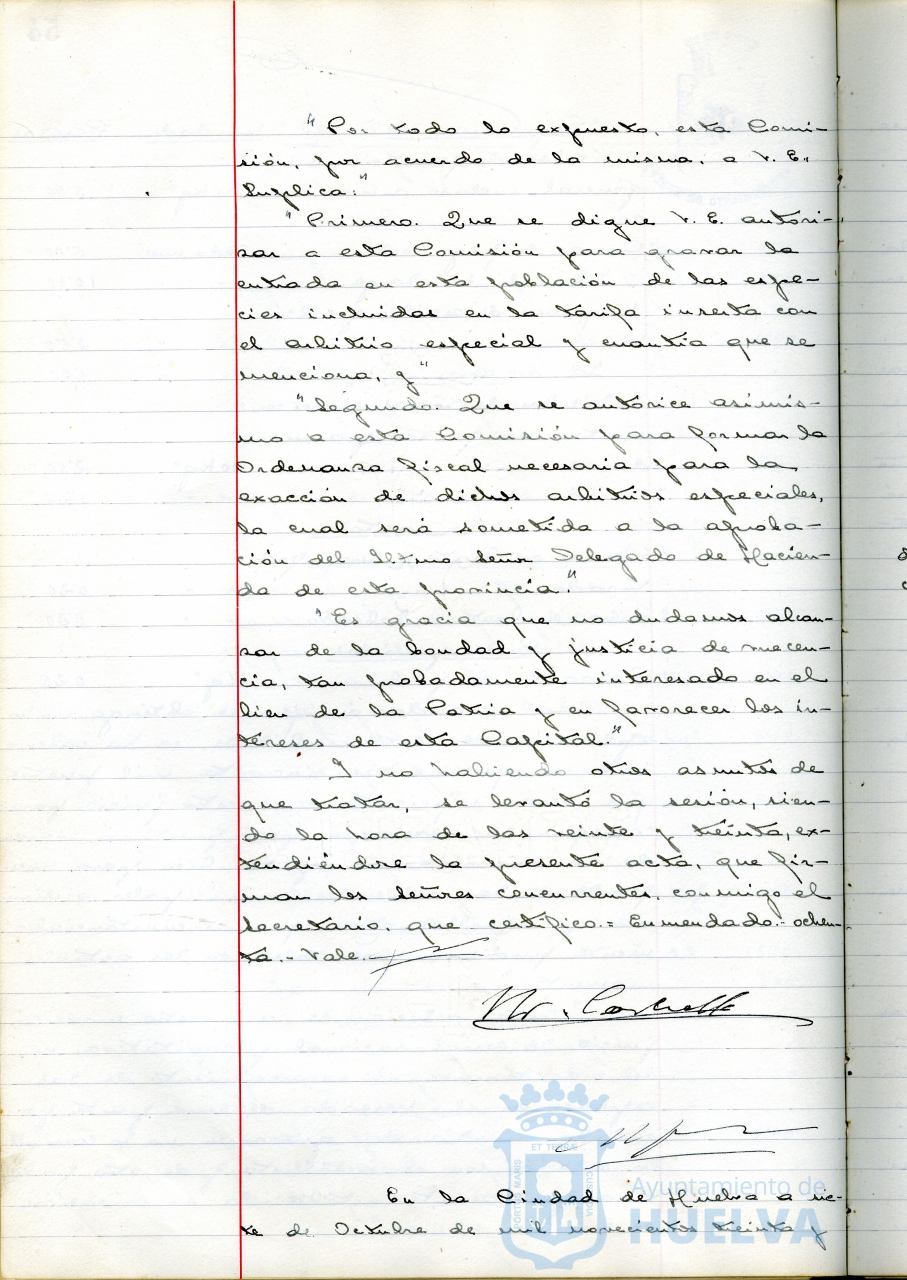 "Por todo lo expuesto, esta Comi-
sión, por acuerdo de la misma, a V. E.
Suplica:"
"Primero. Que se digne V. E. autori-
zar a esta Comisión para gravar la
entrada en esta población de las espe-
cies incluidas en la tarifa inserta con
el arbitrio especial y cuantía que se
menciona, y"
"Segundo. Que se autorice asimis-
mo a esta Comisión para formar la
Ordenanza fiscal necesaria para la
exacción de dichos arbitrios especiales,
la cual será sometida a la aproba-
ción del Iltmo Señor Delegado de Hacien-
da de esta provincia."
"Es gracia que no dudamos alcan-
zar de la bondad y justicia de vuecen-
cia, tan probadamente interesado en el
bien de la Patria y en favorecer los in-
tereses de esta Capital."
Y no habiendo otros asuntos de
que tratar, se levantó la sesión, sien-
do la hora de las veinte y treinta, ex-
tendiéndose la presente acta, que fir-
man los señores concurrentes, conmigo el
Secretario, que certifico.= Enmendado.- ochen-
ta.- Vale.
ET TERRAE
PORTUS MARIS
CUSTODIA
Ayuntamiento de
HUELVA
En la Ciudad de Huelva a sie-
te de Octubre de mil novecientos treinta y